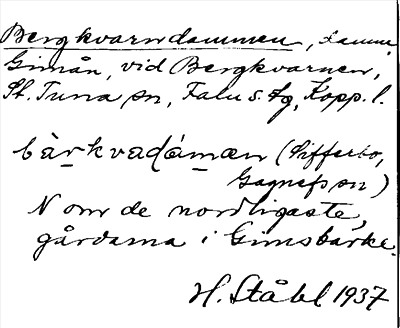 Bergkvarndammen, damm i
Gimån, vid Bergkvarnen,
St. Tuna sn, Falu s. tg, Kopp. l.
bàrkvadámæn (Sifferbo,
Gagnefs sn)
N om de nordligaste
gårdarna i Gimsbärke.
H. Ståhl 1937